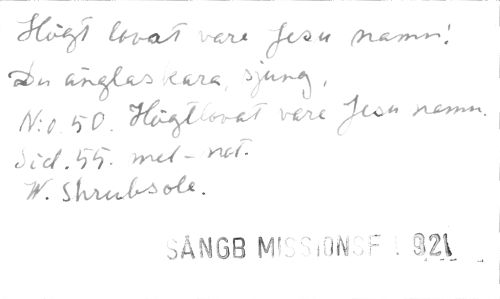 Högt lovat vare Jesu namn!
Du änglaskara, sjung,
N:o 50. Högtlovat vare Jesu namn.
Sid. 55. mel-not.
W. Shrubsole.
SÅNGB MISSIONSF 1921